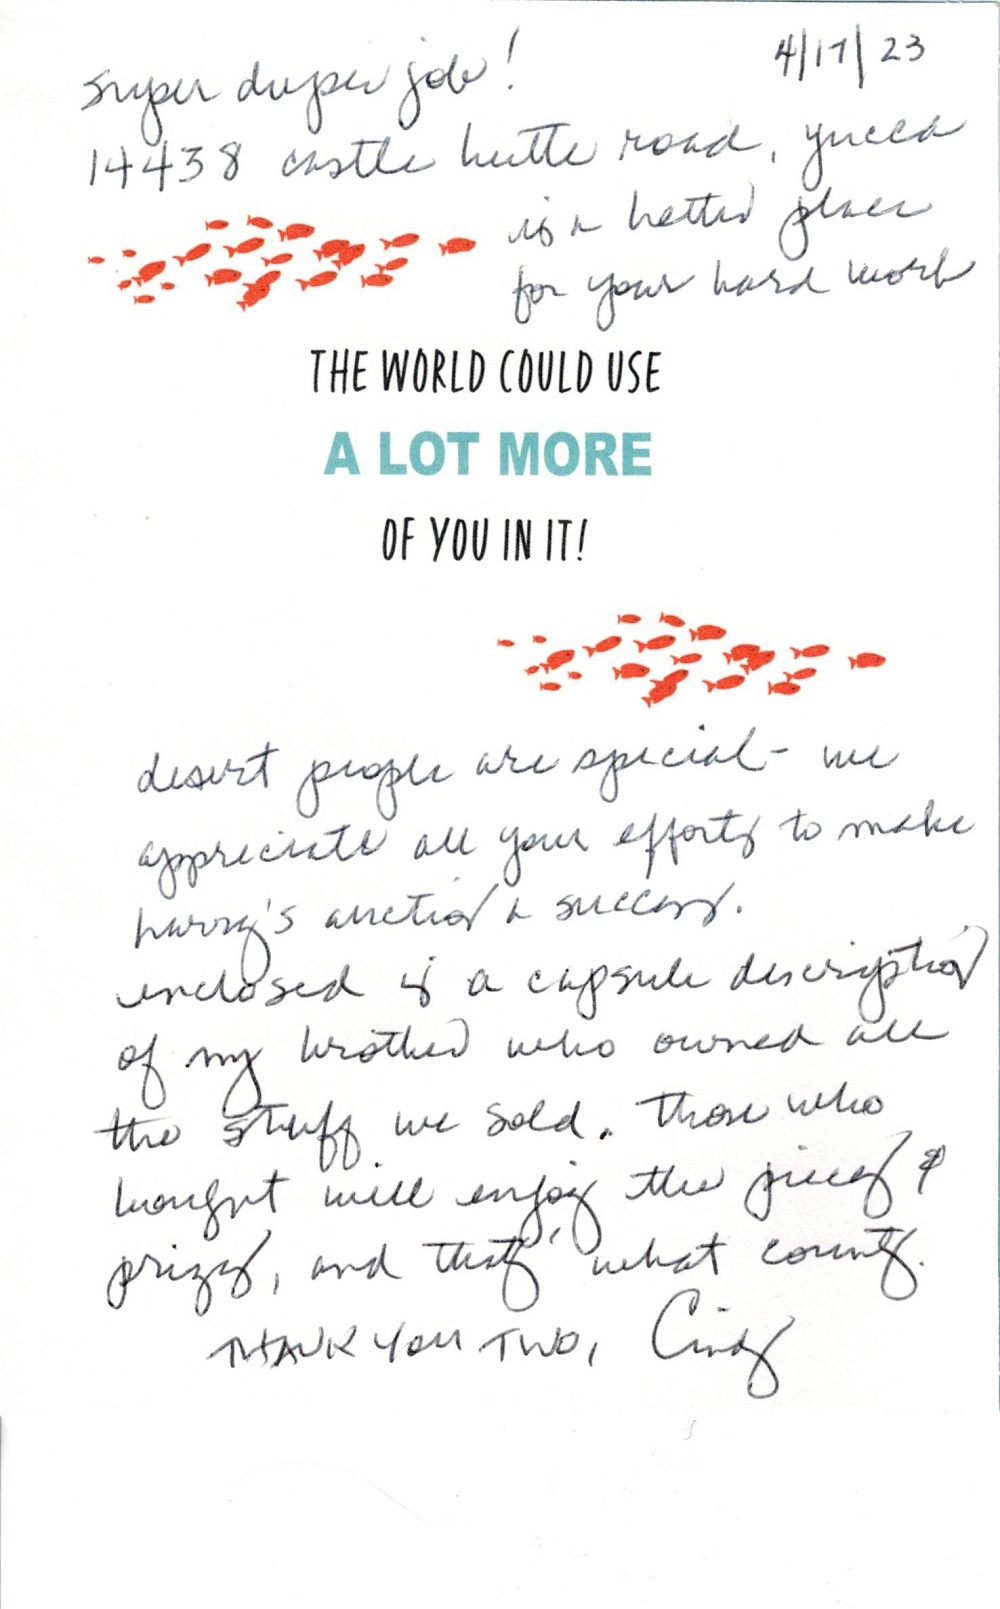 4/17/23
super duper job!
14438 castle butte road, yucca
is a better place
for your hard work
THE WORLD COULD USE
A LOT MORE
OF YOU IN IT!
desert people are special - we
appreciate all your efforts to make
harry's auction a success.
enclosed is a capsule description
of my brother who owned all
the stuff we sold. those who
bought will enjoy the pieces &
prizes, and that's what counts.
THANK YOU TWO, Cindy